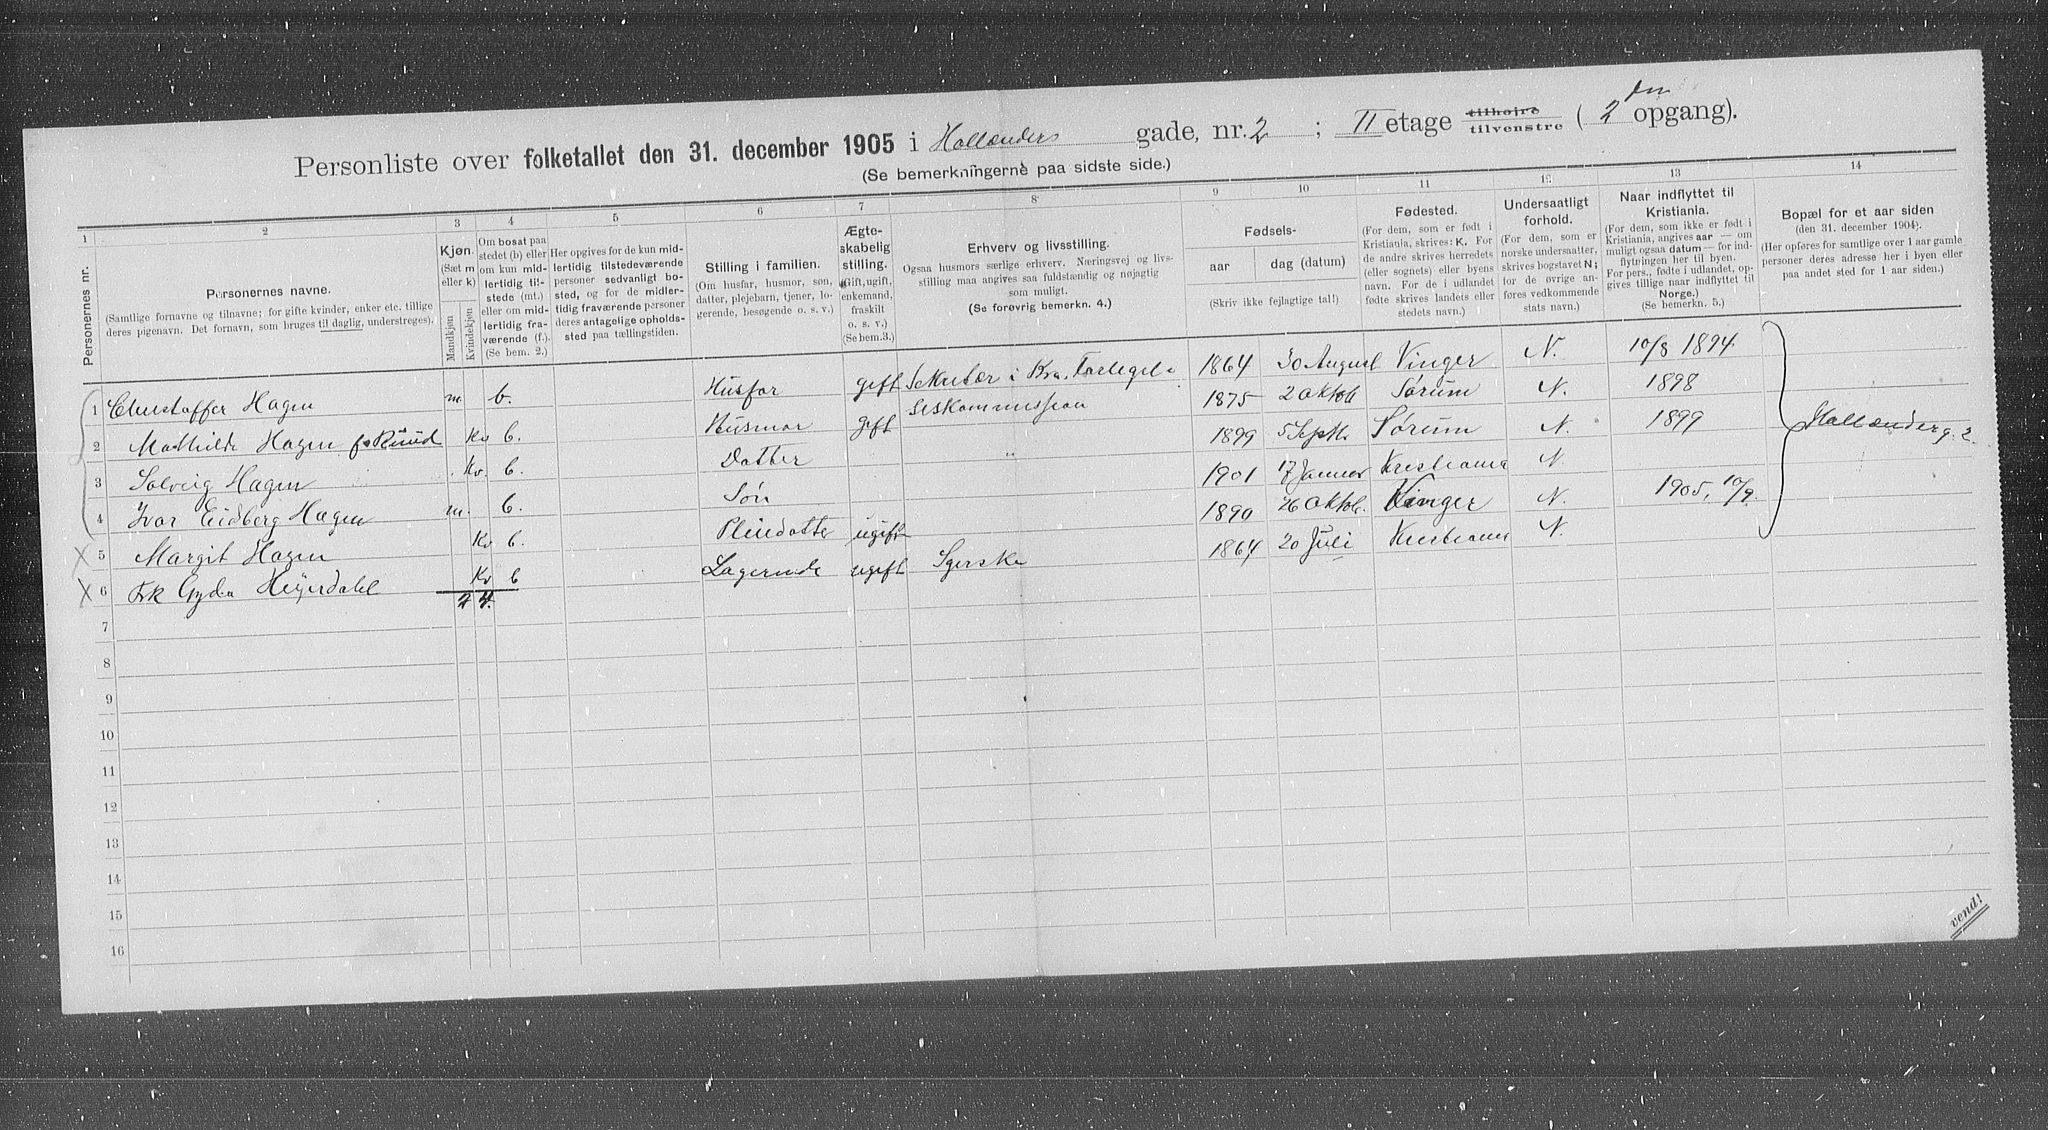 Personliste over folketallet den 31. december 1905 i Hollænders gade, nr. 2 ; II etage tilhøjre tilvenstre ( 2 den opgang).
(Se bemerkningerne paa sidste side.)
1 2 3 4 5 6 7 8 9 10 11 12 13 14
Personernes nr.
Personernes navne.
(Samtlige fornavne og tilnavne; for gifte kvinder, enker etc. tillige
deres pigenavn. Det fornavn, som bruges til daglig, understreges).
Kjøn.
(Sæt m
eller k)
Mandkjøn
Kvindekjøn
Om bosat paa
stedet (b) eller
om kun mid-
lertidig til-
stede (mt.)
eller om mid-
lertidig fra-
værende (f.).
(Se bem. 2.)
Her opgives for de kun mid-
lertidig tilstedeværende
personer sedvanligt bo-
sted, og for de midler-
tidig fraværende personer
deres antagelige opholds-
sted paa tællingstiden.
Stilling i familien.
(Om husfar, husmor, søn,
datter, plejebarn, tjener, lo-
gerende, besøgende o. s. v.)
Ægte-
skabelig
stilling.
(Gift, ugift,
enkemand,
fraskilt
o. s. v.)
(Se bem.3.)
Erhverv og livsstilling.
Ogsaa husmors særlige erhverv. Næringsvej og livs-
stilling maa angives saa fuldstændig og nøjagtig
som muligt.
(Se forøvrig bemerkn. 4.)
Fødsels-
aar
dag (datum)
(Skriv ikke fejlagtige tal!)
Fødested.
(For dem, som er født i
Kristiania, skrives: K. For
de andre skrives herredets
(eller sognets) eller byens
navn. For de i udlandet
fødte skrives landets eller
stedets navn.)
Undersaatligt
forhold.
(For dem, som er
norske undersaatter,
skrives bogstavet N;
for de øvrige an-
føres vedkommende
stats navn.)
Naar indflyttet til
Kristiania.
(For dem, som ikke er født i
Kristiania, angives aar — om
muligt ogsaa datum — for ind-
flytringen her til byen.
For pers., fødte i udlandet, op-
gives tillige naar indflyttet til
Norge.)
(Se bemerkn. 5.)
Bopæl for et aar siden
(den 31. december 1904).
(Her opføres for samtlige over 1 aar gamle
personer deres adresse her i byen eller
paa andet sted for 1 aar siden.)
1 Christoffer Hagen m. b. Husfar gift Sekretær i 1864 30 August Vinger N. 10/8 1894
2 Mathilde Hagen f. Ruud Kv b. Husmor gift 1875 2 Oktob Sørum N. 1898
3 Solveig Hagen Kv. b. Datter " 1899 5 Septb. Sørum N. 1899 Hollænderg. 2.
4 Ivar Eidberg Hagen m. b. Søn 1901 17 Januar Kristiania N
5 Margit Hagen Kv b. Pleiedatter ugift 1890 26 Oktob. Vinger N. 1905, 10/9.
6 Frk Gyda Heyerdahl Kv b Logerende ugift Syerske 1864 20 Juli Kristiania N.
2 4.
7
8
9
10
11
12
13
14
15
16
vend!